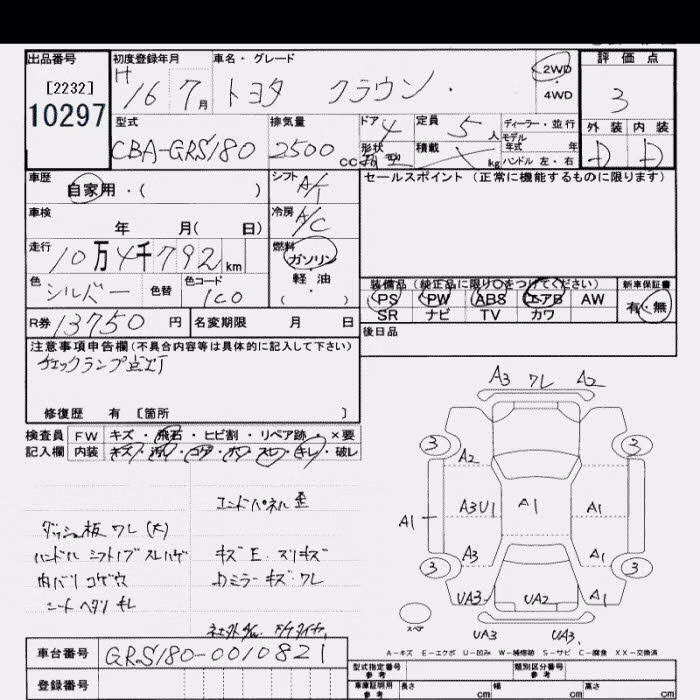 出品番号
[2232]
10297
初度登録年月
H 16 7月
車名・グレード
トヨタ クラウン
2WD
・
4WD
評価点
3
外装 内装
D D
型式
CBA-GRS180
排気量
2500 cc
ドア 4
形状
定員
5人
積載
kg
ディーラー・並行
モデル
年式 年
ハンドル 左・右
車歴
自家用・( )
シフト
A/T
車検
年 月( 日)
冷房
A/C
走行
10万4千792km
燃料
ガソリン
軽油
( ・ )
色
シルバー
色替
色コード
1C0
R券 13750円
名変期限 月 日
セールスポイント (正常に機能するものに限ります)
装備品 (純正品に限り〇をつけてください)
PS PW ABS エアB AW
SR ナビ TV カワ
新車保証書
有・無
後日品
注意事項申告欄 (不具合内容等は具体的に記入して下さい)
チェックランプ点灯
修復歴 有 [箇所 ]
検査員
記入欄
FW キズ・飛石・ヒビ割・リペア跡・×要
内装 キズ・汚れ・コゲ・穴・スレ・キレ・破レ
エンドパネル歪
ダッシュ板 ワレ (大)
ハンドル シフトノブ スレハゲ
キズ E. スリキズ
内バリ コゲ穴
Dミラー キズ ワレ
シート ヘタリ キレ
A3 ワレ A2
3 3
A2
A1 A3U1 A1 A1
A3 A1
3 3
UA3 UA2 A1
スペア
UA3 UA3
A-キズ E-エクボ U-凹み W-補修跡 S-サビ C-腐食 XX-交換済
車台番号
GRS180-0010821
登録番号
型式指定番号
参考
類別区分番号
参考
車庫証明用
参考
長さ cm
幅 cm
高さ cm